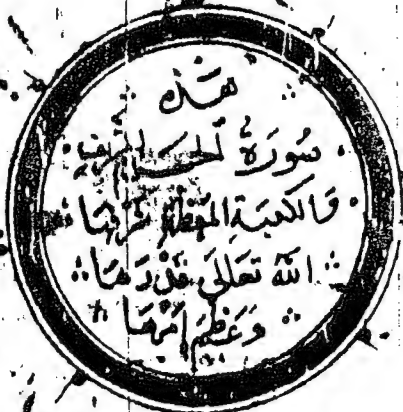 هذه
سورة الحرم الشريف
والكعبة المعظمة شرفها
الله تعالى قدرها
وعظم أمرها